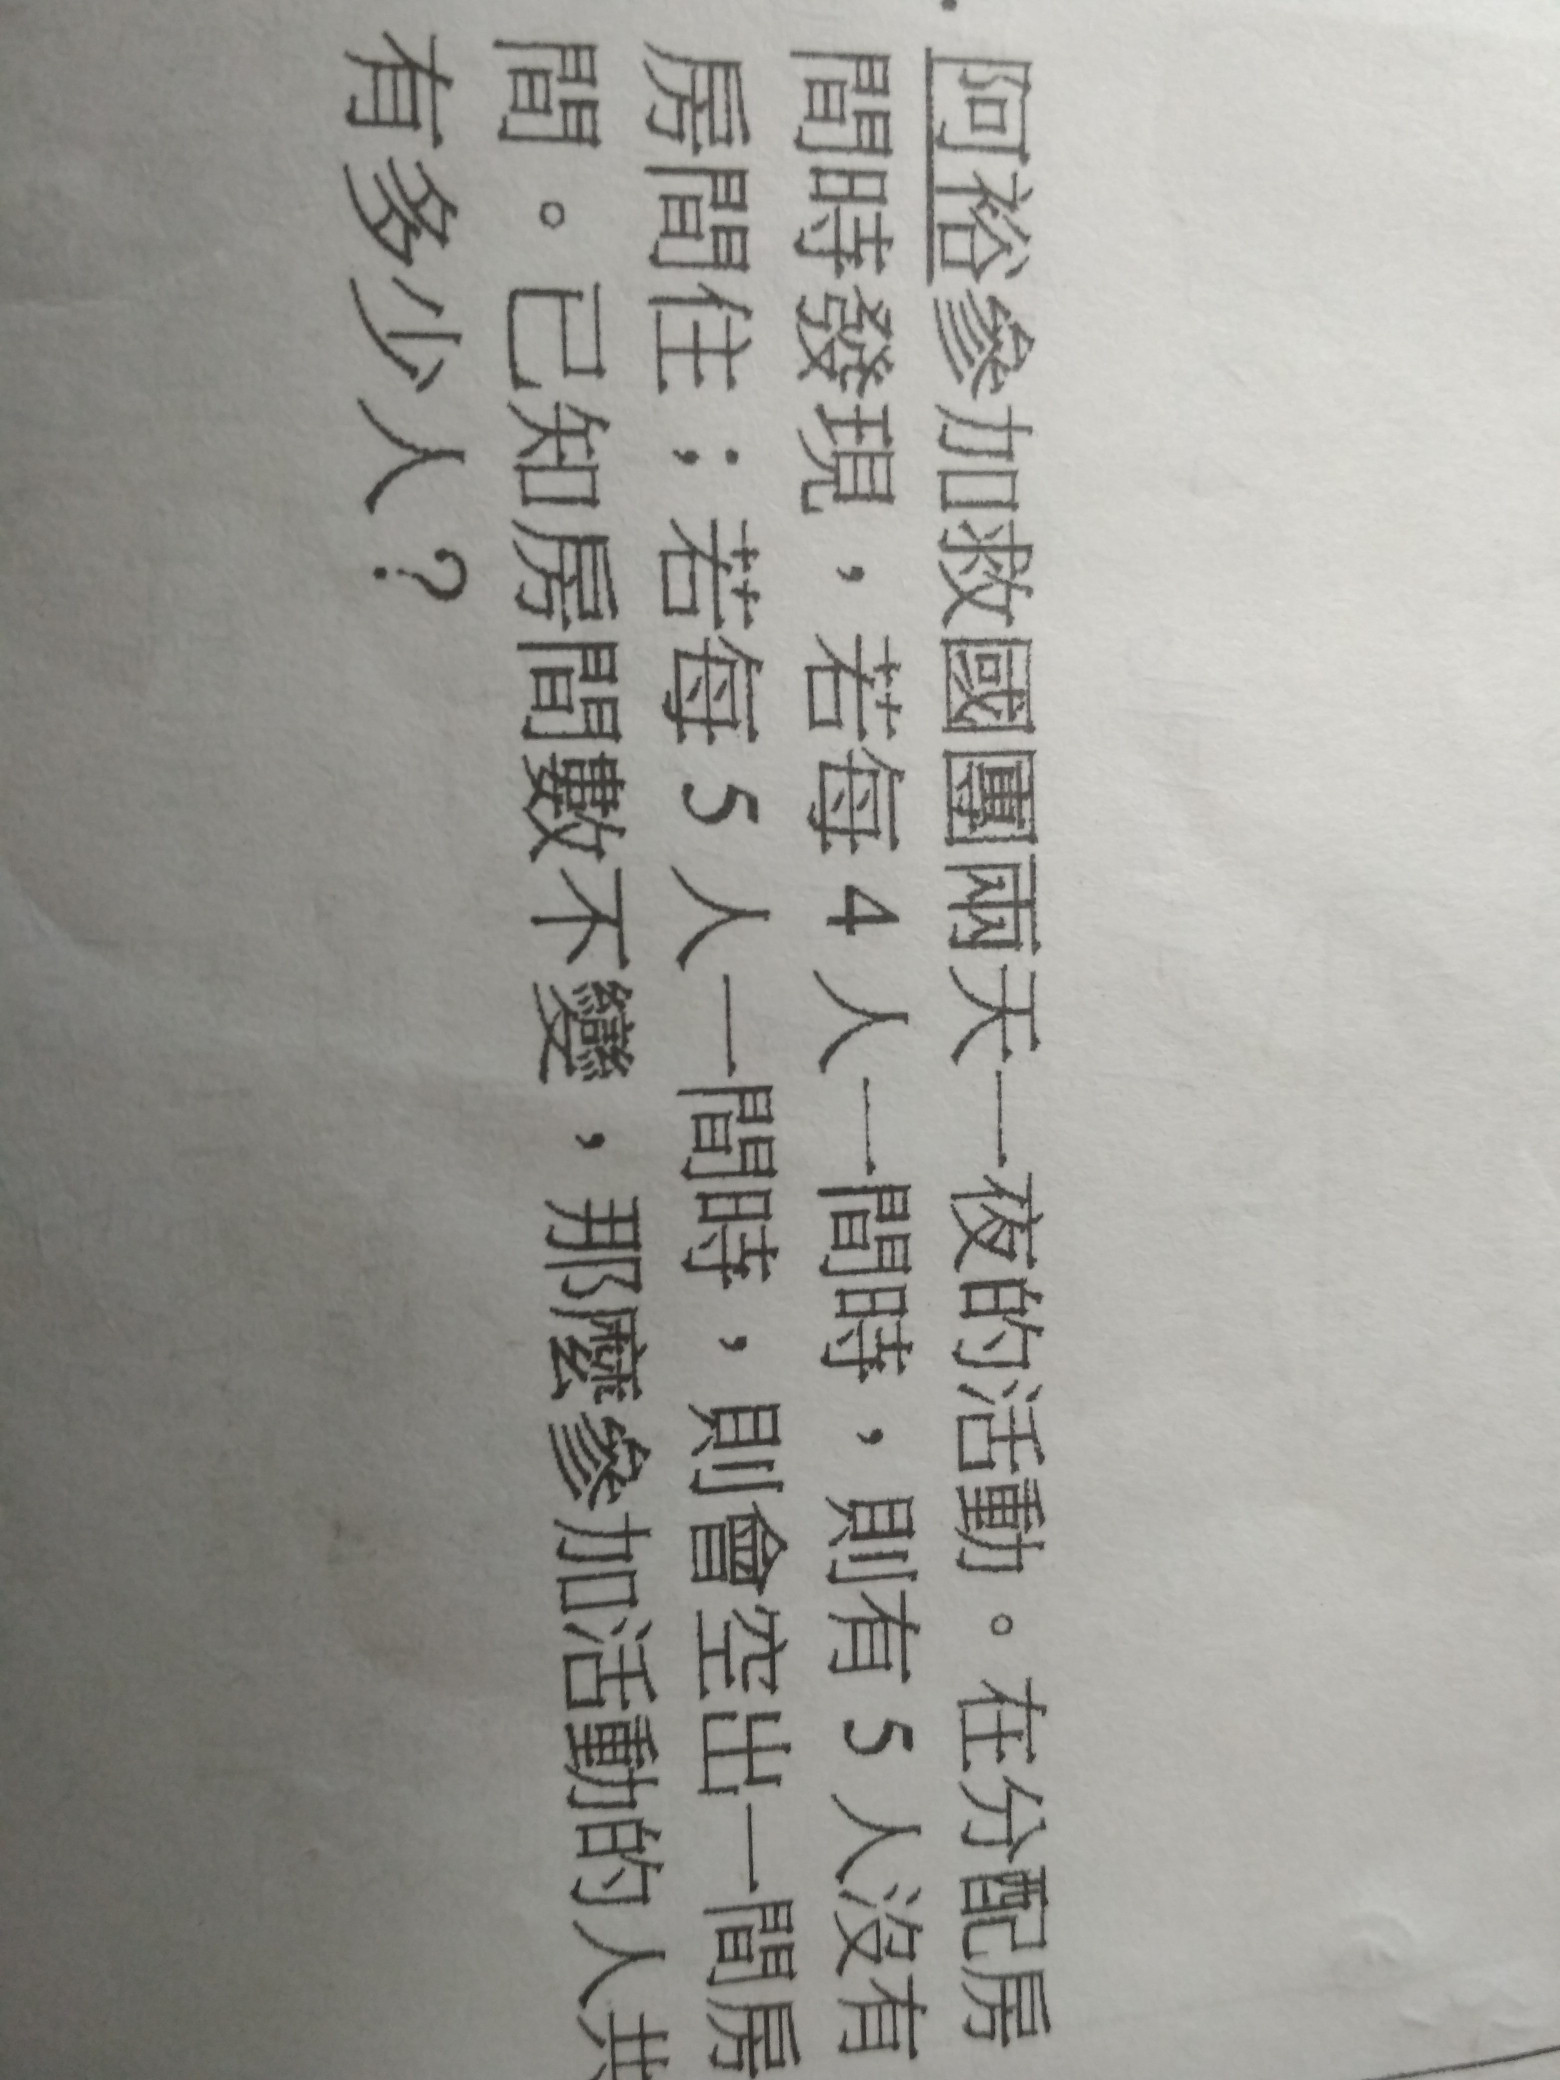 阿裕參加救國團兩天一夜的活動。在分配房
間時發現,若每4人一間時,則有5人沒有
房間住;若每5人一間時,則會空出一間房
間。已知房間數不變,那麼參加活動的人共
有多少人?